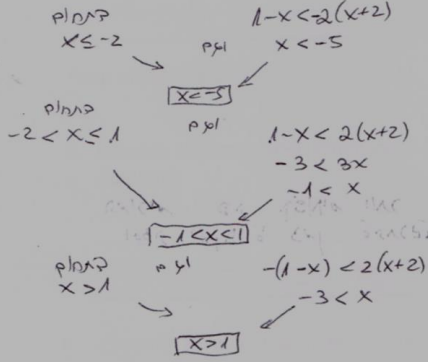 בתחום
x ≤ -2
1-x < -2(x+2)
x < -5
וגם
x < -5
בתחום
-2 < x ≤ 1
וגם
1-x < 2(x+2)
-3 < 3x
-1 < x
-1 < x < 1
בתחום
x > 1
וגם
-(1-x) < 2(x+2)
-3 < x
x > 1